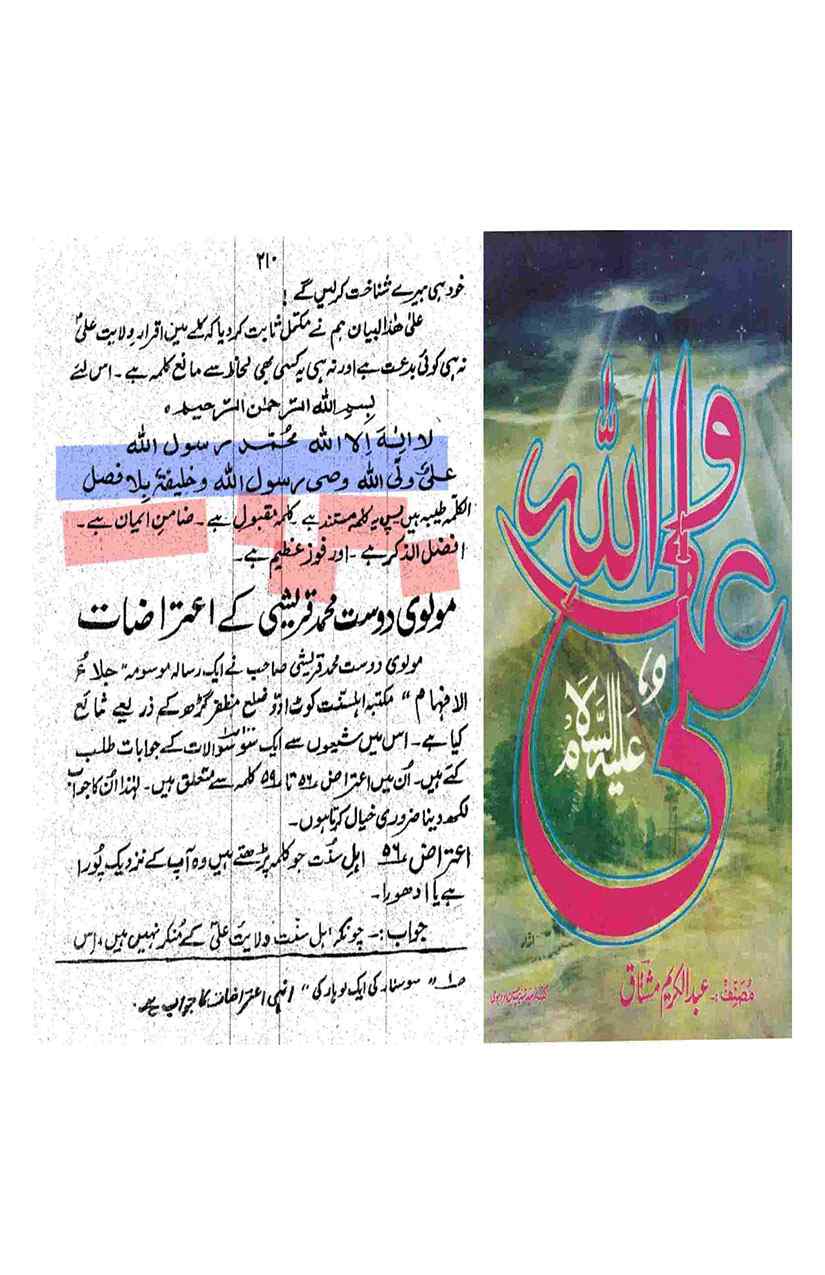 ۲۱۰
خود ہی میرے شناخت کرلیں گے!
علیٰ ھذالبیان ہم نے مکمل ثابت کردیا کہ کلمے میں اقرار ولایت علیؑ
نہ ہی کوئی بدعت ہے اور نہ ہی یہ کسی بھی لحاظ سے مانع کلمہ ہے۔ اس لئے
بسم اللہ الرحمٰن الرحیم ہ
لا الٰہ الا اللہ محمّد رسول اللہ
علیؑ ولی اللہ وصی رسول اللہ و خلیفۃ بلا فصل
الکلمہ طیبہ ہیں پس یہ کلمہ مستند ہے۔ کلمہ مقبول ہے۔ ضامن ایمان ہے۔
افضل الذکر ہے۔ اور فوز عظیم ہے۔
مولوی دوست محمد قریشی کے اعتراضات
مولوی دوست محمد قریشی صاحب نے ایک رسالہ موسومہ "جلاء
الافہام" مکتبہ اہلسنت کوٹ ادّو ضلع مظفر گڑھ کے ذریعے شائع
کیا ہے۔ اس میں شیعوں سے ایک سو سوالات کے جوابات طلب
کئے ہیں۔ اُن میں اعتراض ۵۶ تا ۵۹ کلمہ سے متعلق ہیں۔ لہٰذا اُن کا جواب
لکھ دینا ضروری خیال کرتا ہوں۔
اعتراض ۵۶ اہل سنّت جو کلمہ پڑھتے ہیں وہ آپ کے نزدیک پُورا
ہے یا ادھورا۔
جواب:۔ چونکہ اہل سنت ولایت علیؑ کے مُنکر نہیں ہیں، اس
۱ "سو سنار کی ایک لوہار کی" انہی اعتراضات کا جواب ہے۔
علی ولی اللہ
علیہ السلام
مصنف:۔ عبدالکریم مشتاق